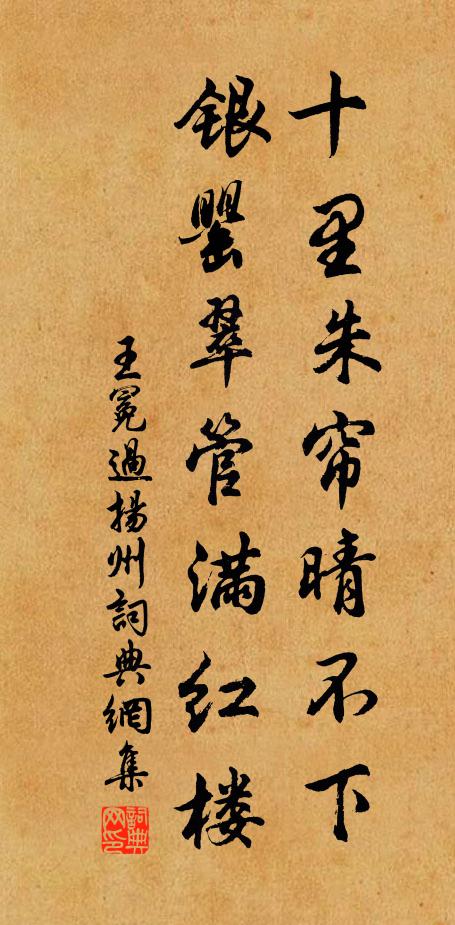 十里朱帘晴不下
银罂翠管满红楼
王冕過揚州詞典網集
詞典網印